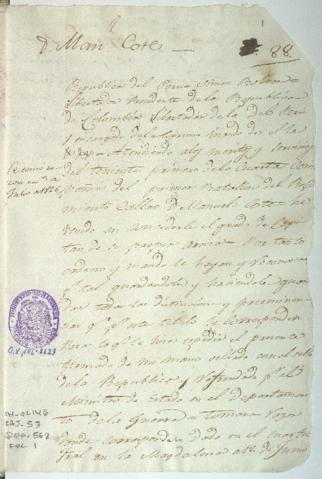 D. Man. Cote
1
88
Republica del Peru = Simon Bolivar =
Libertador Presidente de la Republica
de Colombia Libertador de la del Peru
y encargado del Supremo mando de ella
Atendiendo alos meritos y servicios
del teniente primero de la Cuarta Com
pañia del primer Batallon del Regi
miento Callao D. Manuel Cote he
venido en concederle el grado de Capi
tan de su propia arma = Por tanto
ordeno y mando le hayan y reconozcan
p.r tal guardandole y haciendole guar
dar todas las distinciones y preeminen
cias q.e p.r este titulo le corresponden
Para lo q.e le hice expedir el presente
firmado de mi mano sellado con el sello
de la Republica y refrendado p.r el
Ministro de Estado en el departamen
to de la Guerra = Tomese razon
donde corresponda = Dado en el cuartel
Gral en la Magdalena a 12 de Junio
O.L. 146-2623
H-OL146
CAJ. 53
DOC. 562
FOL 1